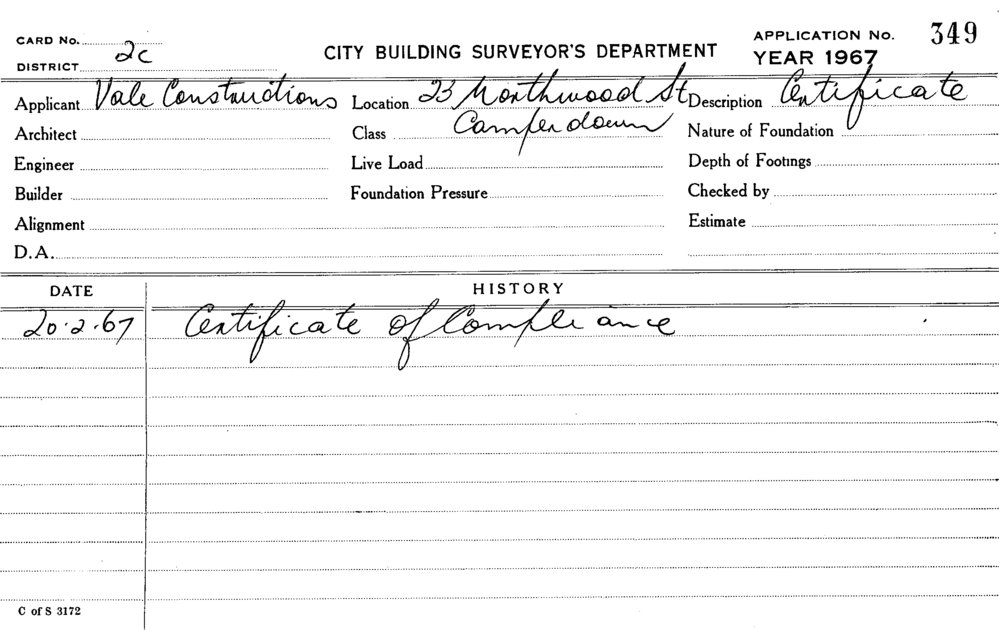 CARD No.
2c
DISTRICT
CITY BUILDING SURVEYOR'S DEPARTMENT
APPLICATION No. 349
YEAR 1967
Applicant Vale Constructions Location 23 Northwood St Description Certificate
Architect Class Camperdown Nature of Foundation
Engineer Live Load Depth of Footings
Builder Foundation Pressure Checked by
Alignment Estimate
D.A.
DATE HISTORY
20.2.67 Certificate of Compliance
C of S 3172